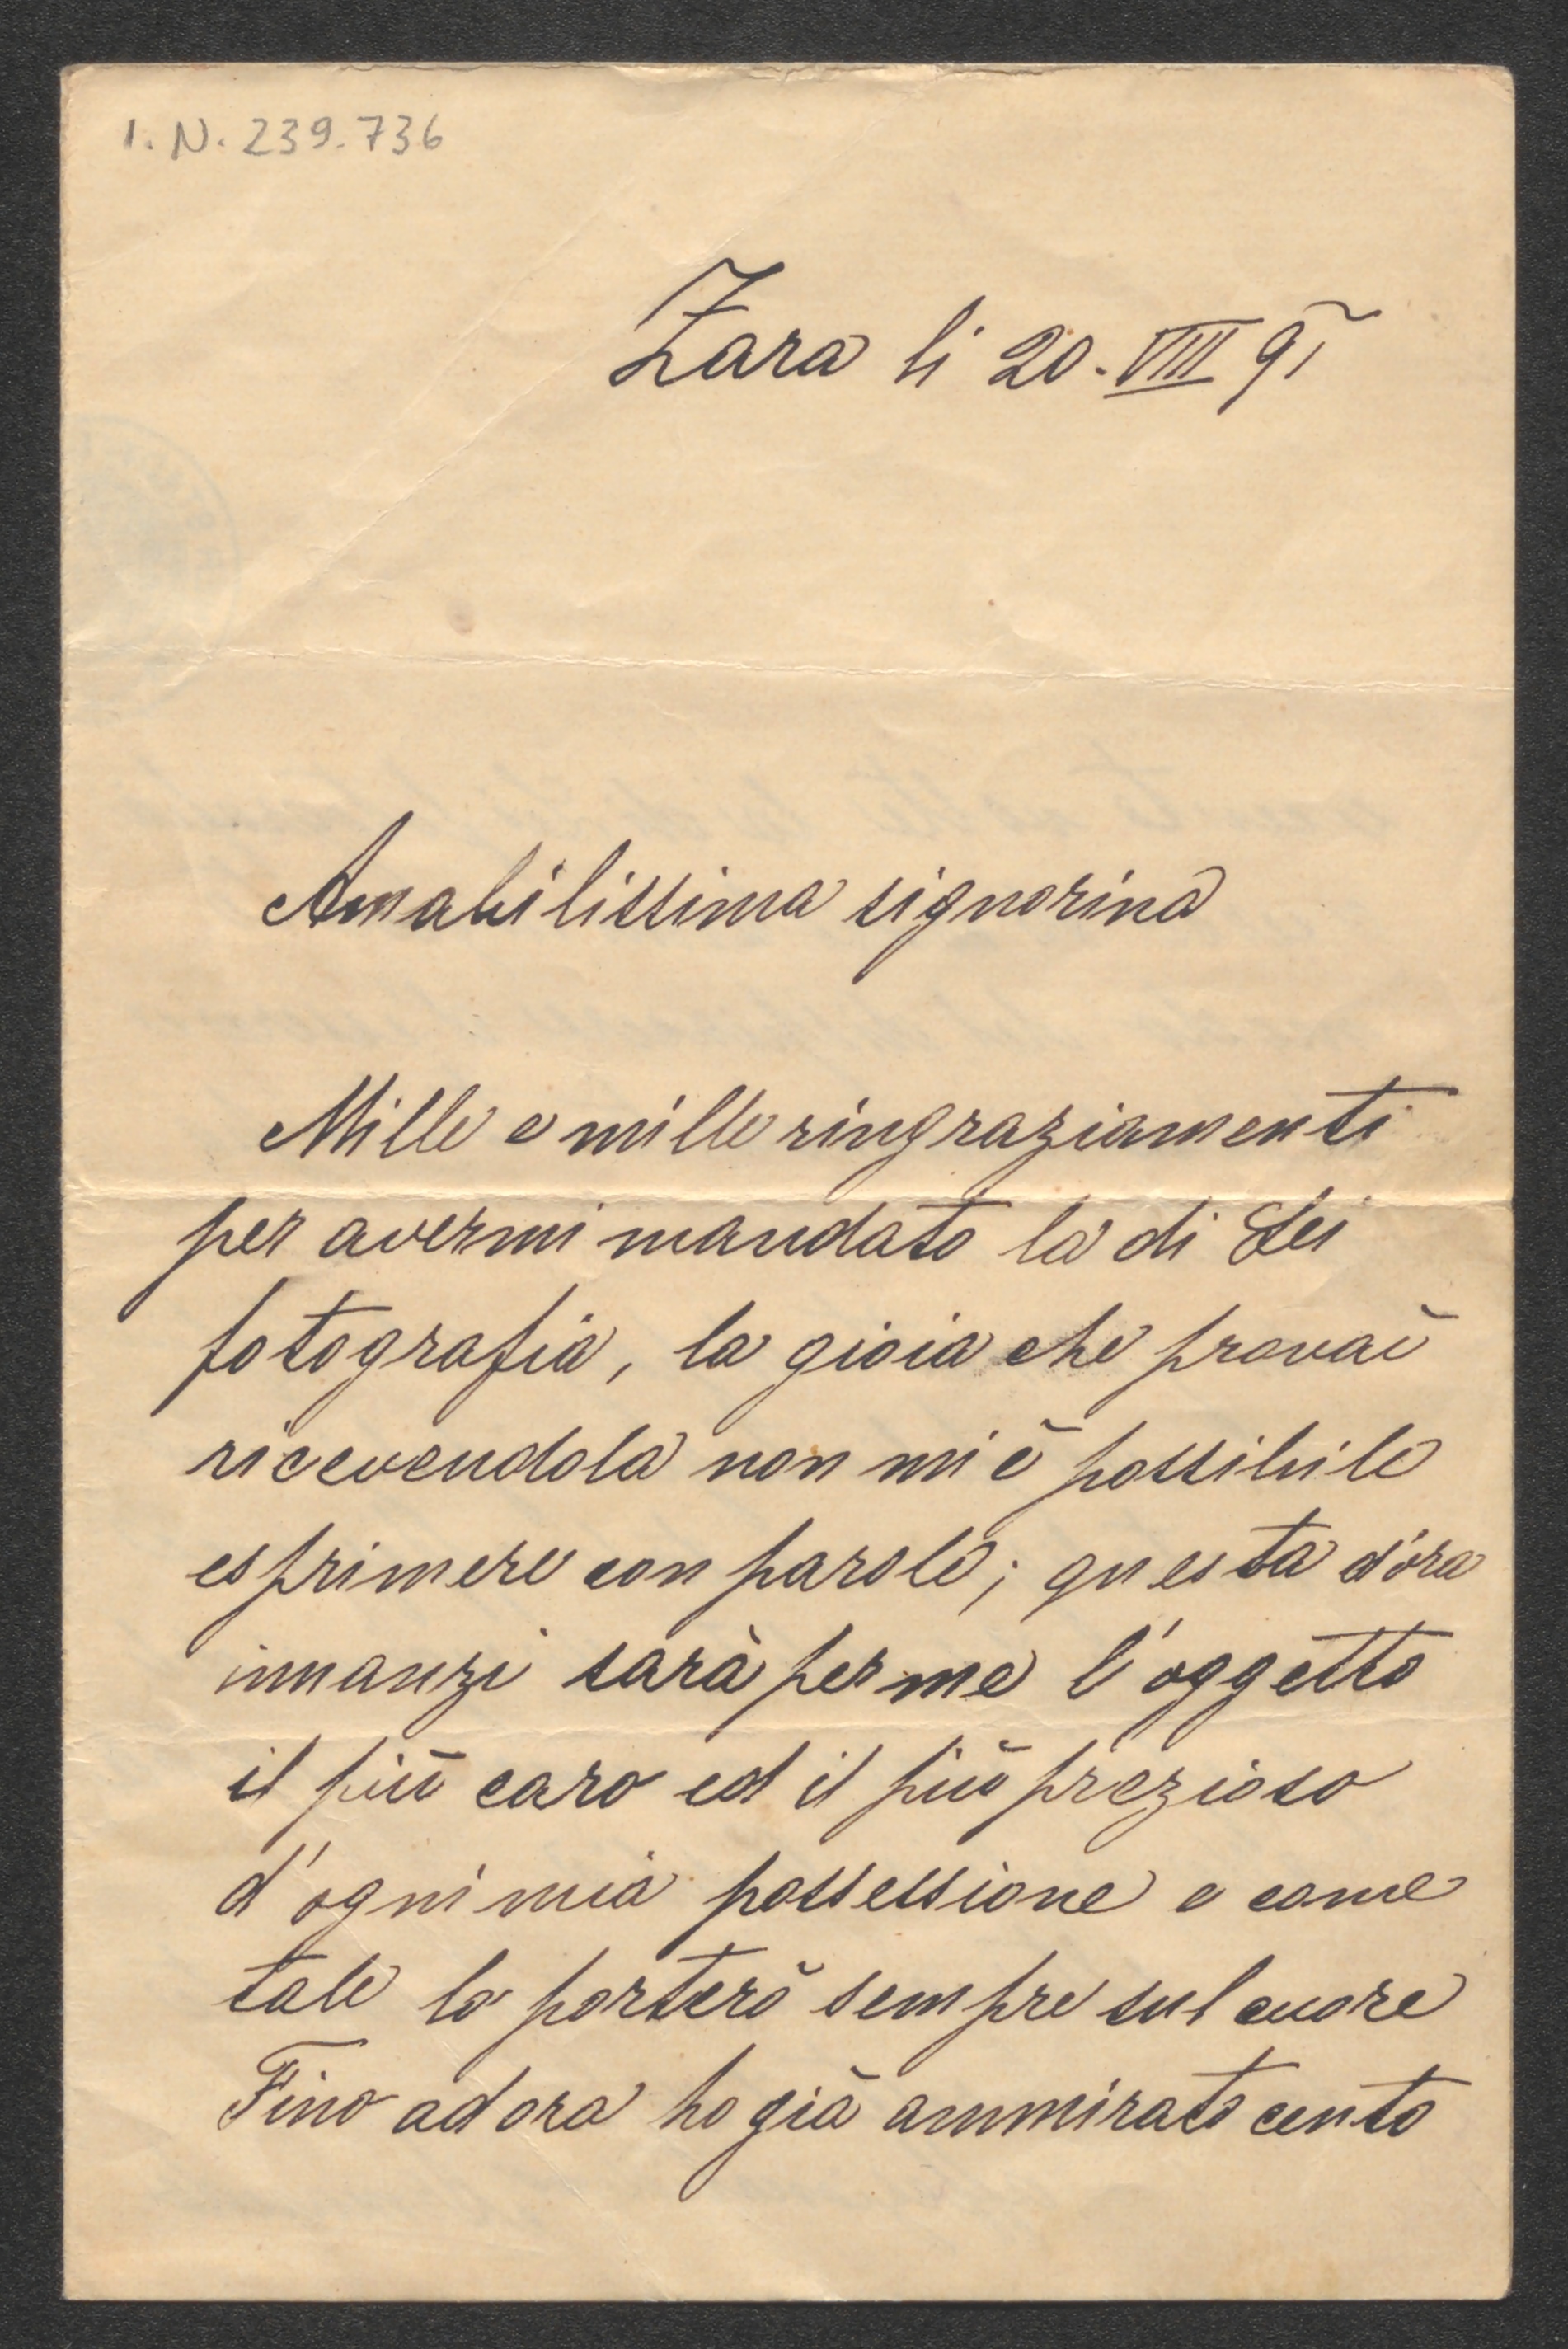 I. N. 239.736
Zara li 20. VIII 95
Amabilissima signorina
Mille e mille ringraziamenti
per avermi mandato la di Lei
fotografia, la gioia che provai
ricevendola non mi è possibile
esprimere con parole; questa d'ora
innanzi sarà per me l'oggetto
il più caro ed il più prezioso
d'ogni mia possessione e come
tale lo porterò sempre sul cuore
Fino ad ora ho già ammirato cento